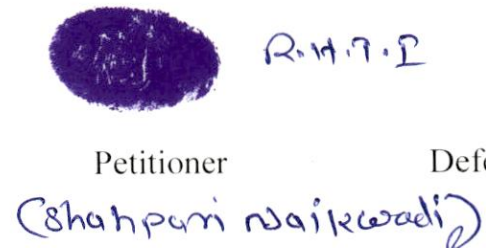 R.H.T.I
Petitioner Defe
(Shahpari Naikwadi)